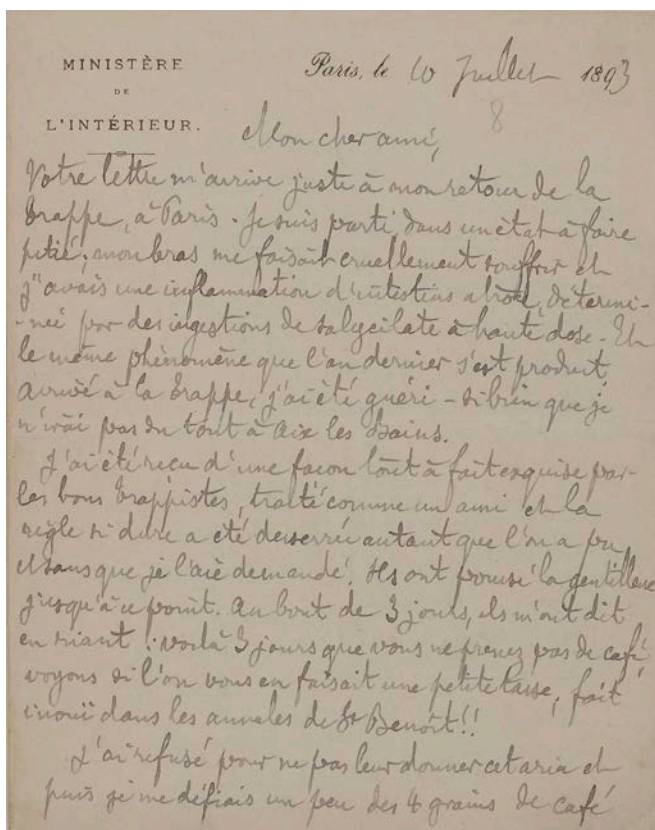 MINISTÈRE
DE
L'INTÉRIEUR.
Paris, le 10 Juillet 1893
8
Mon cher ami,
Votre lettre m'arrive juste à mon retour de la
Trappe, à Paris. Je suis parti dans un état à faire
pitié; mon bras me faisait cruellement souffrir et
j'avais une inflammation d'intestins atroce, détermi-
-née par des ingestions de salycilate à haute dose. Et
le même phénomène que l'an dernier s'est produit,
arrivé à la Trappe, j'ai été guéri - si bien que je
n'irai pas du tout à Aix les Bains.
J'ai été reçu d'une façon tout à fait exquise par
les bons trappistes, traité comme un ami et la
règle si dure a été desserrée autant que l'on a pu,
et sans que je l'aie demandé. Ils ont poussé la gentillesse
jusqu'à ce point. Au bout de 3 jours, ils m'ont dit
en riant : voilà 3 jours que vous ne prenez pas de café,
voyons si l'on vous en faisait une petite tasse, fait
inouï dans les annales de St Benoît!!
J'ai refusé pour ne pas leur donner cet aria et
puis je me défiais un peu des 4 grains de café